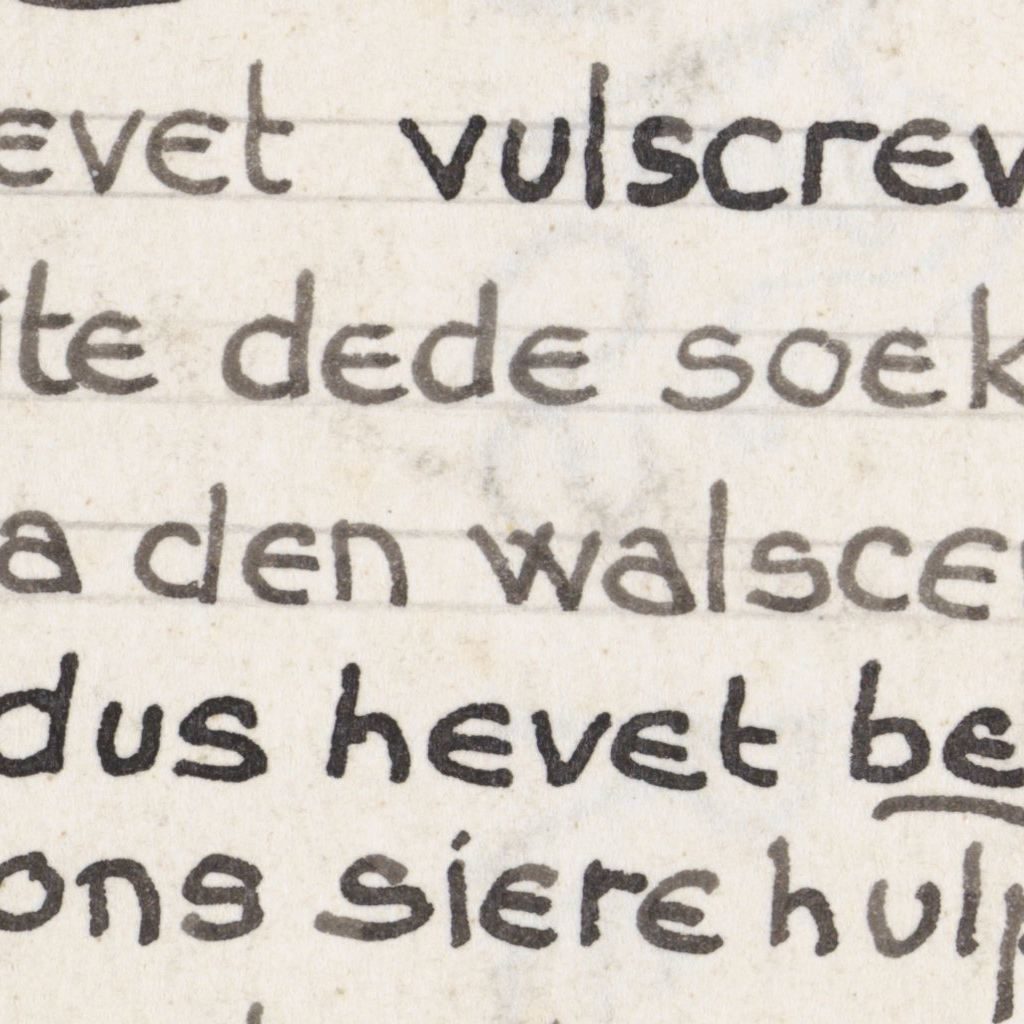 evet vulscrev
ite dede soek
a den walscen
dus hevet be
ons siere hulp